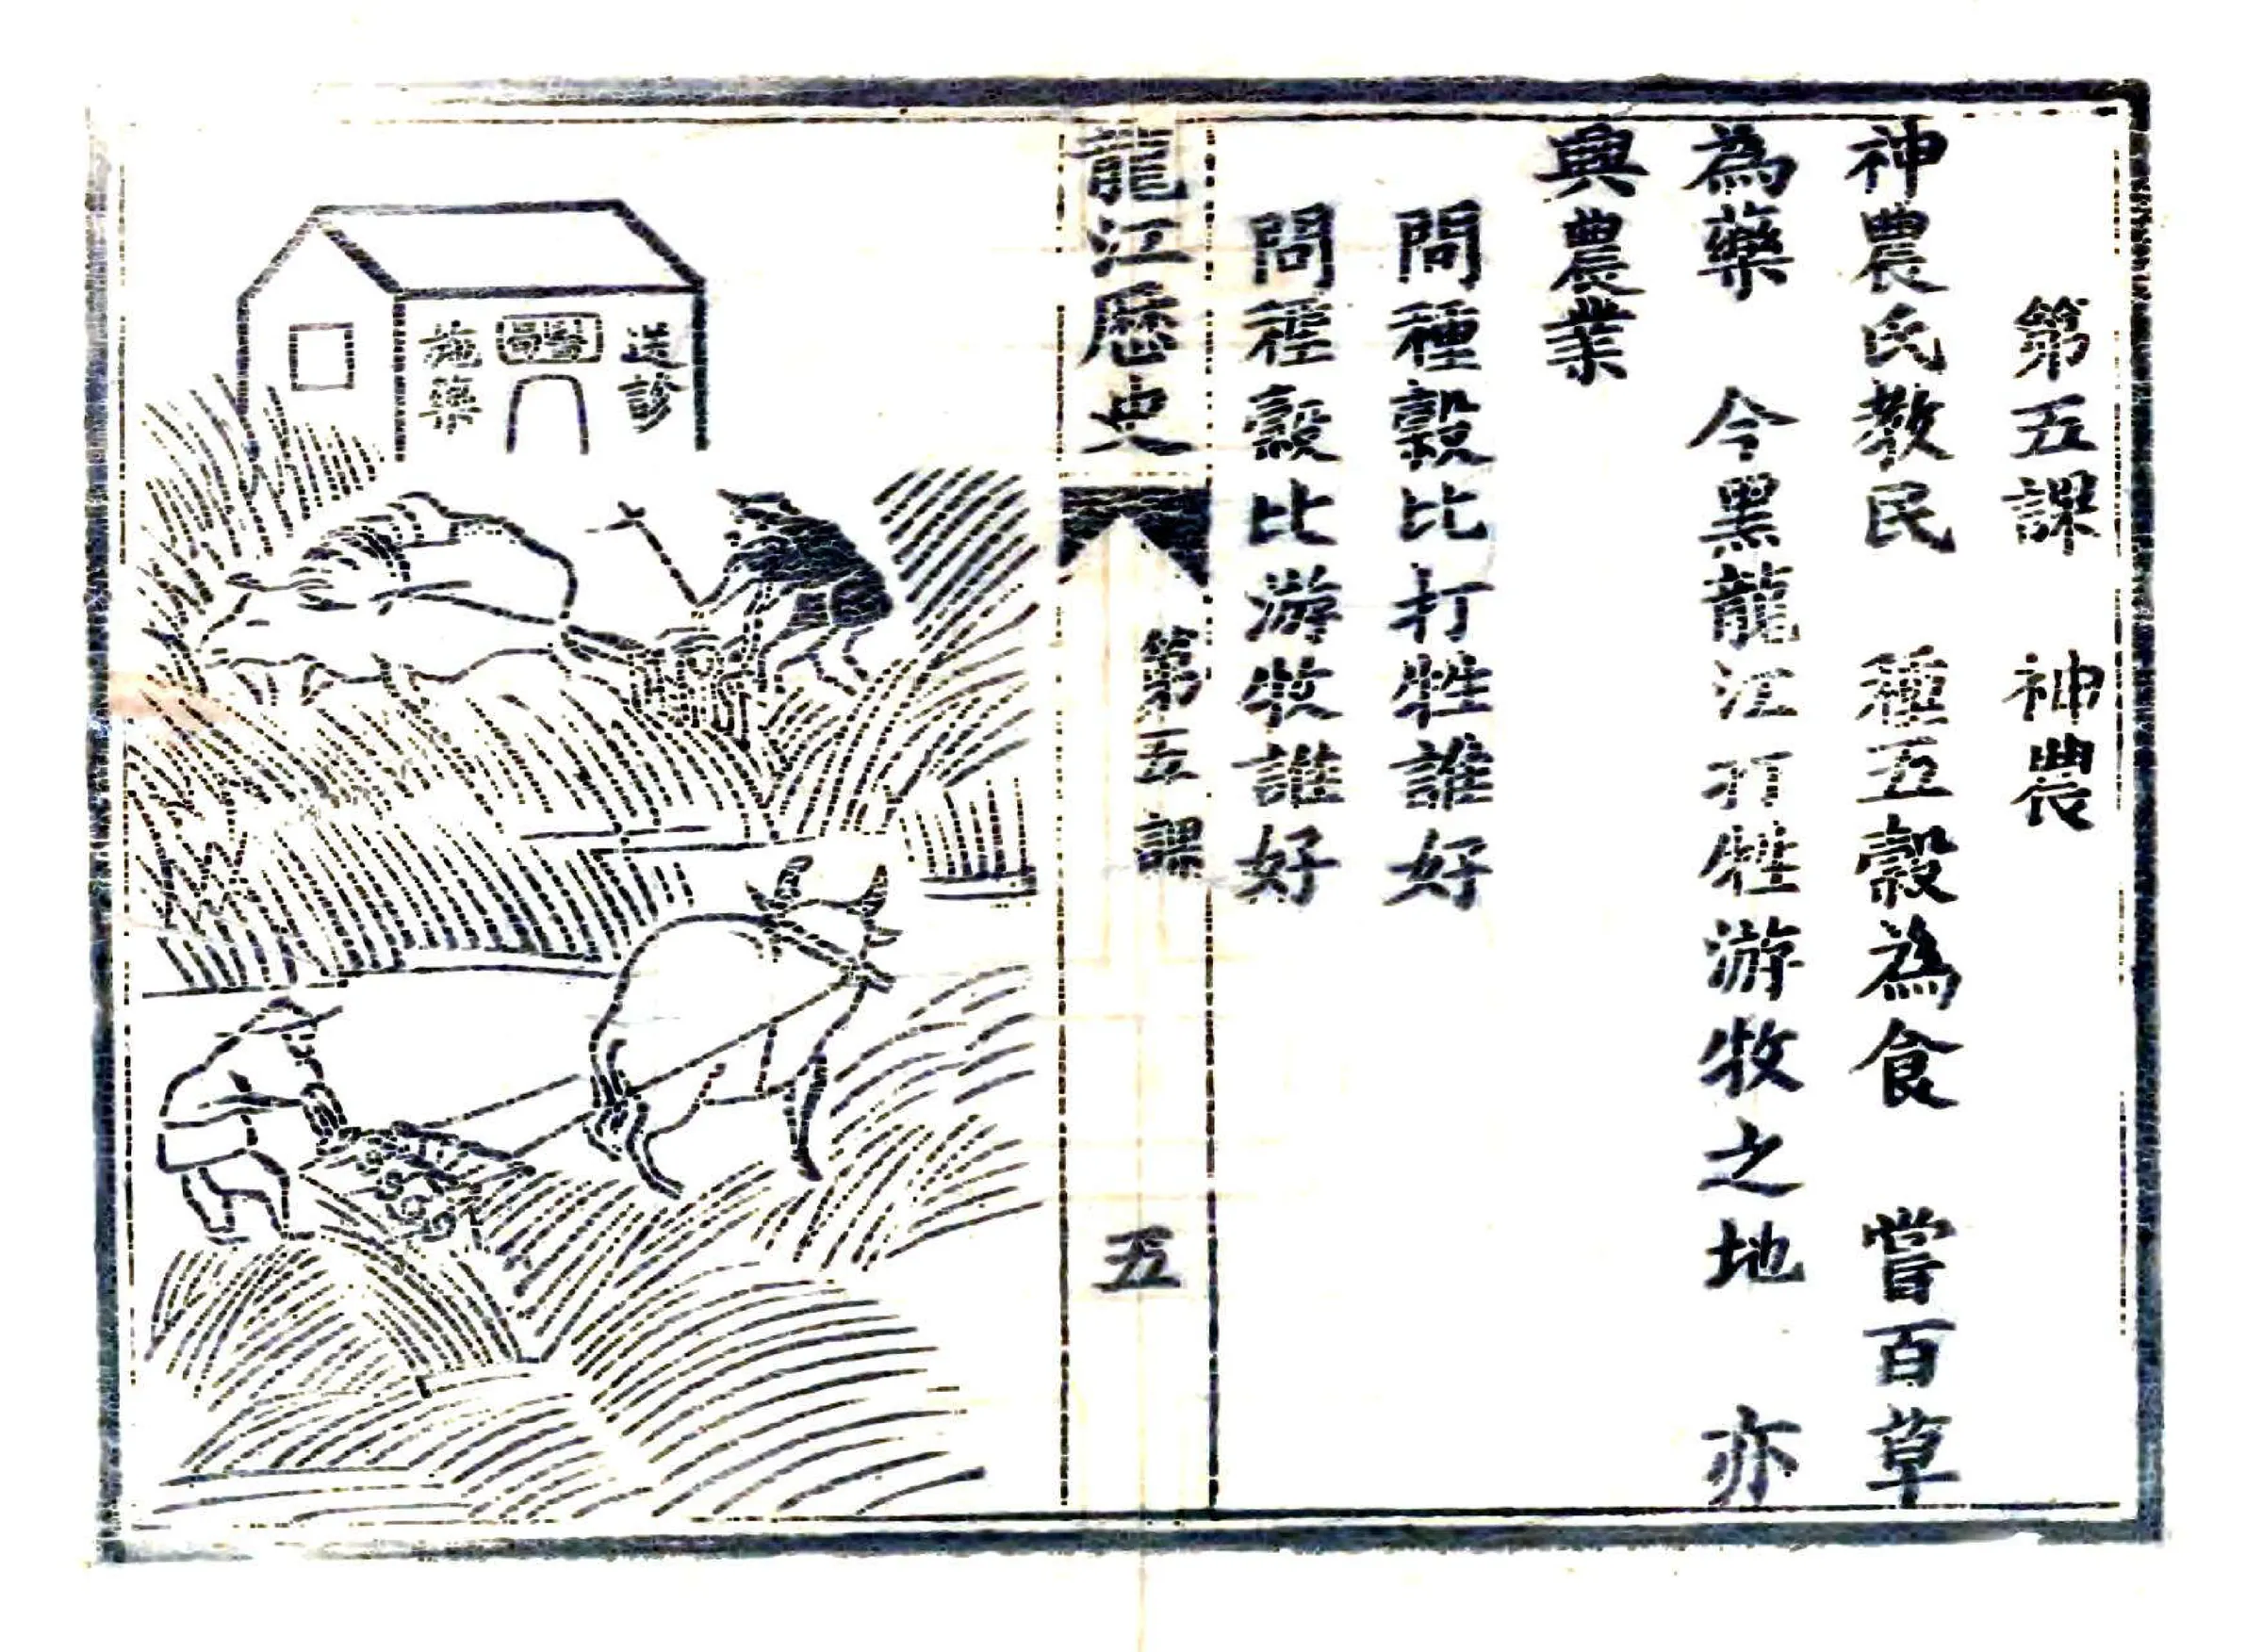 第五課　神農
神農氏教民　種五穀為食　嘗百草
為藥　今黑龍江打牲游牧之地　亦
興農業
問種穀比打牲誰好
問種穀比游牧誰好
龍江歷史
第五課
五
送診
施藥